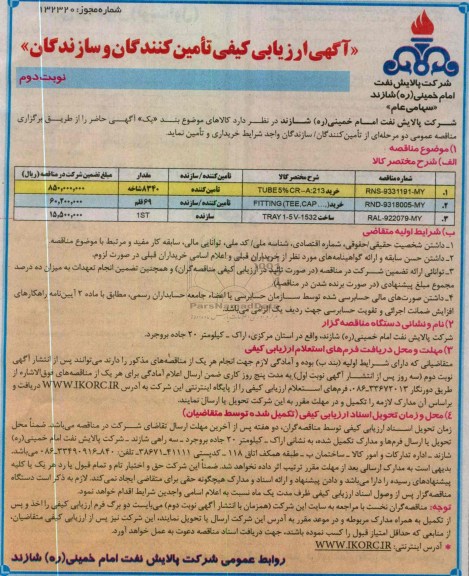 شماره مجوز: ۱۳۲۳۲۰
شرکت پالایش نفت
امام خمینی(ره) شازند
«سهامی عام»
«آگهی ارزیابی کیفی تأمین کنندگان و سازندگان»
نوبت دوم
شرکت پالایش نفت امام خمینی(ره) شازند در نظر دارد کالاهای موضوع بند «یک» آگهی حاضر را از طریق برگزاری
مناقصه عمومی دو مرحله‌ای از تأمین‌کنندگان/ سازندگان واجد شرایط خریداری و تأمین نماید.
۱) موضوع مناقصه
الف) شرح مختصر کالا
شماره مناقصه شرح مختصر کالا تأمین‌کننده / سازنده مقدار مبلغ تضمین شرکت در مناقصه (ریال)
۱. RNS-9331191-MY خرید TUBE5%CR-A:213 تأمین‌کننده ۸۳۴۰شاخه ۸۵۰,۰۰۰,۰۰۰
۲. RND-9318005-MY خرید(.....FITTING(TEE,CAP تأمین‌کننده / سازنده ۶۹قلم ۶۰,۲۰۰,۰۰۰
۳. RAL-922079-MY ساخت TRAY1-5V-1532 سازنده 1ST ۱۵,۵۰۰,۰۰۰
ب) شرایط اولیه متقاضی
۱ـ داشتن شخصیت حقیقی/حقوقی، شماره اقتصادی، شناسه ملی/ کد ملی، توانایی مالی، سابقه کار مفید و مرتبط با موضوع مناقصه.
۲ـ داشتن حسن سابقه و ارائه گواهینامه‌های مورد نظر از خریداران قبلی و اعلام اسامی خریداران قبلی در صورت لزوم.
۳ـ توانائی ارائه تضمین شرکت در مناقصه (در صورت تأیید در ارزیابی کیفی مناقصه‌گران) و همچنین تضمین انجام تعهدات به میزان ده درصد
مجموع مبلغ پیشنهادی (در صورت برنده شدن در مناقصه).
۴ـ داشتن صورت‌های مالی حسابرسی شده توسط سازمان حسابرسی یا اعضاء جامعه حسابداران رسمی، مطابق با ماده ۲ آیین‌نامه راهکارهای
افزایش ضمانت اجرائی و تقویت حسابرسی جهت ردیف یک الزامی می‌باشد.
۲) نام و نشانی دستگاه مناقصه‌گزار
شرکت پالایش نفت امام خمینی(ره) شازند، واقع در استان مرکزی، اراک ـ کیلومتر ۲۰ جاده بروجرد.
۳) مهلت و محل دریافت فرم‌های استعلام ارزیابی کیفی
متقاضیانی که دارای شرایط اولیه (بند ب) بوده و آمادگی لازم جهت انجام هر یک از مناقصه‌های مذکور را دارند می‌توانند پس از انتشار آگهی
نوبت دوم (سه روز پس از انتشار آگهی نوبت اول) به مدت پنج روز کاری ضمن ارسال اعلام آمادگی برای هر یک از مناقصه‌های فوق‌الاشاره از
طریق دورنگار ۳۳۶۷۲۰۱۳ـ۰۸۶، فرم‌های استعلام ارزیابی کیفی را از پایگاه اینترنتی این شرکت به آدرس WWW.IKORC.IR دریافت و
براساس آن مدارک لازمه را تکمیل و در مهلت مقرر به این شرکت تحویل یا ارسال نمایند.
٤) محل و زمان تحویل اسناد ارزیابی کیفی (تکمیل شده توسط متقاضیان)
زمان تحویل اسناد ارزیابی کیفی توسط مناقصه‌گران، دو هفته پس از آخرین مهلت ارسال تقاضای شرکت در مناقصه می‌باشد. ضمناً محل
تحویل یا ارسال فرم‌ها و مدارک تکمیل شده، به نشانی اراک ـ کیلومتر ۲۰ جاده بروجرد ـ سه راهی شازند ـ شرکت پالایش نفت امام خمینی(ره)
شازند ـ اداره تدارکات و امور کالا ـ ساختمان ب ـ طبقه همکف اتاق ۱۱۸ ـ کدپستی ۴۱۱۱۱ـ۳۸۶۷۱، تلفن: ۸۴۰ـ۳۳۴۹۰۹۱۶ـ۰۸۶ می‌باشد.
بدیهی است به مدارک ارسالی بعد از مهلت مقرر ترتیب اثر داده نخواهد شد. ضمناً این شرکت حق و اختیار تام و تمام قبول یا رد هر یک یا کلیه
پیشنهادهای رسیده را دارا می‌باشد و دادن پیشنهاد و ارائه اسناد و مدارک هیچگونه حقی برای متقاضی ایجاد نمی‌کند. لازم به ذکر است دستگاه
مناقصه‌گزار پس از وصول اسناد ارزیابی کیفی ظرف مدت یک ماه نسبت به اعلام اسامی واجدین شرایط اقدام خواهد نمود.
توجه: مناقصه‌گران نخست با مراجعه به سایت این شرکت (همزمان با انتشار آگهی نوبت دوم) می‌بایست دو برگ فرم ارزیابی کیفی را اخذ و پس
از تکمیل به همراه مدارک مربوطه و در موعد مقرر به آدرس این شرکت ارسال یا تحویل نمایند، این شرکت نیز پس از ارزیابی کیفی متقاضیان،
از منابعی که حداقل امتیاز قبول را کسب نموده باشند، جهت دریافت اسناد مناقصه دعوت به عمل خواهد آورد.
آدرس اینترنتی: WWW.IKORC.IR
روابط عمومی شرکت پالایش نفت امام خمینی(ره) شازند